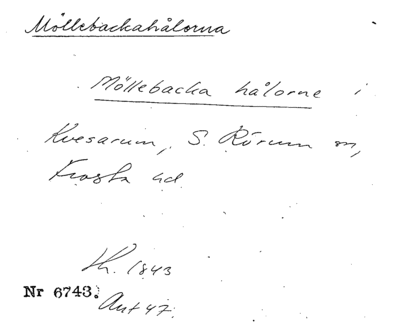 Möllebackahålorna
Möllebacka hålorne i
Kvesarum, S. Rörum sn,
Frosta hd
Kr. 1843
Nr 6743.
Ant 47.